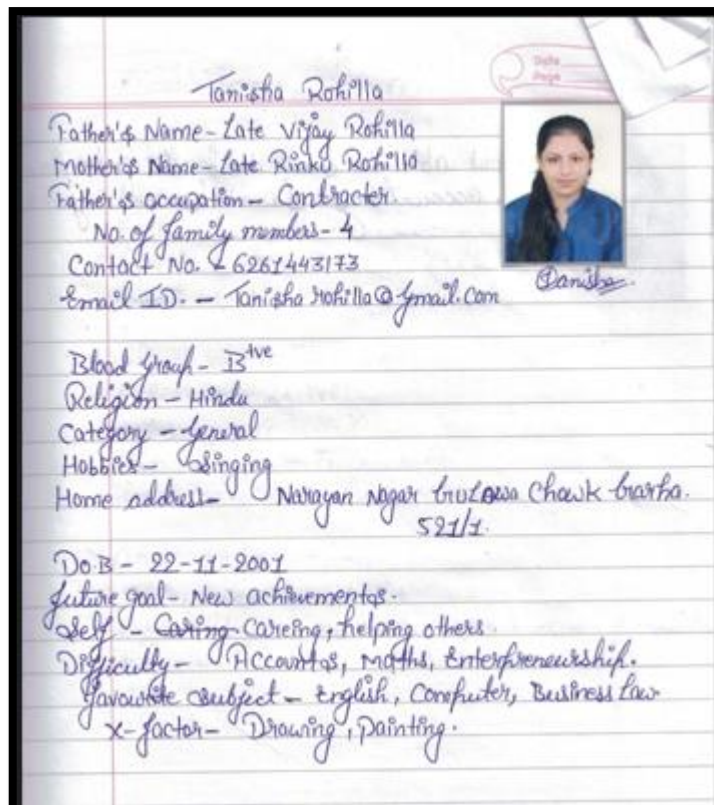 Date
Page
Tanisha Rohilla
Father's Name - Late Vijay Rohilla
Mother's Name - Late Rinku Rohilla
Father's occupation - Contracter
No. of family members - 4
Contact No. - 6261443173
Email ID. - Tanisha rohilla@gmail.com
Tanisha
Blood group - B+ve
Religion - Hindu
Category - General
Hobbies - Singing
Home address - Narayan Nagar Chowk
521/1.
DoB - 22-11-2001
future goal - New achievements.
Self - Caring Careing, helping others.
Difficulty - Accounts, Maths, Enterpreneurship.
favourite subject - English, Computer, Business Law
X-factor - Drawing, painting.